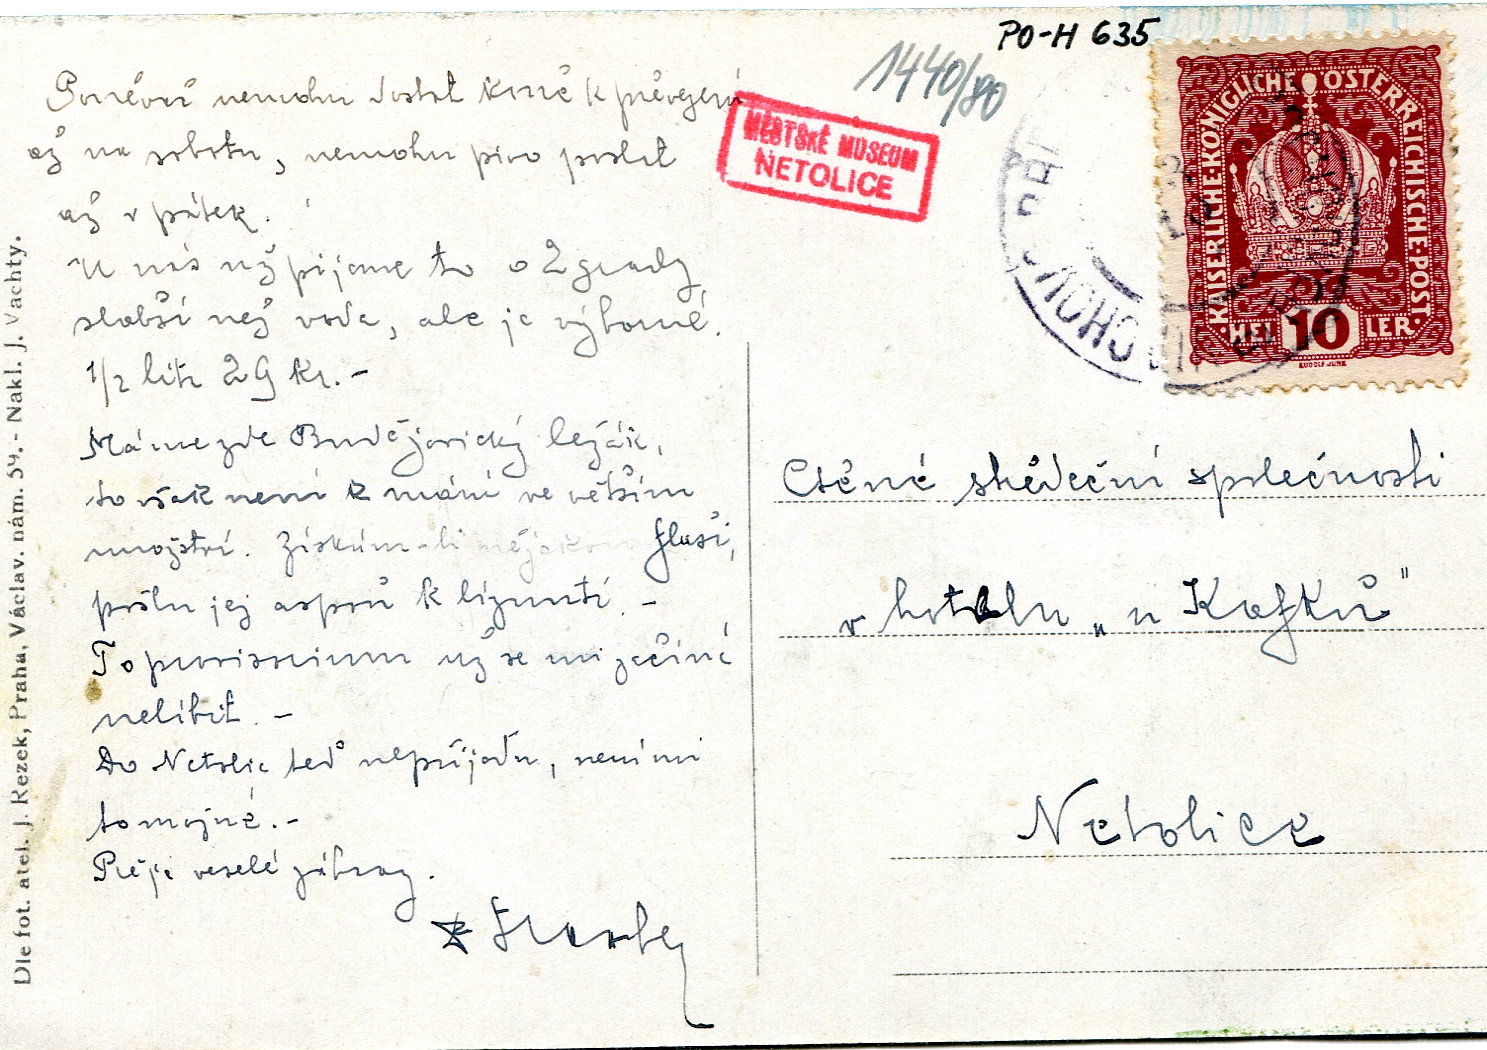 PO-H 635
1440/80
MĚSTSKÉ MUSEUM
NETOLICE
KAISERLICHE·KÖNIGLICHE ÖSTERREICHISCHE·POST
HEL 10 LER
RUDOLF JUNK
Poněvač nemohu dostat koně k převezení
až na sobotu, nemohu pivo poslat
až v pátek.
U nás nyž pijeme to o 2 grady
slabší než voda, ale je výborné.
1/2 litr 29 Kr.-
Máme zde Budějovický ležák,
to však není k mání ve větším
množství. Získám-li nějakou flaši,
pošlu jej aspoň k líznutí.-
To provisorium už se mi začíná
nelíbit.-
Do Netolic teď nepřijedu, není mi
to možné.-
Přeje veselé zábavy.
Ctěné štědeční společnosti
v hotelu „u Kafků"
Netolice
Dle fot. atel. J. Rezek, Praha, Václav. nám. 59.- Nakl. J. Vachty.